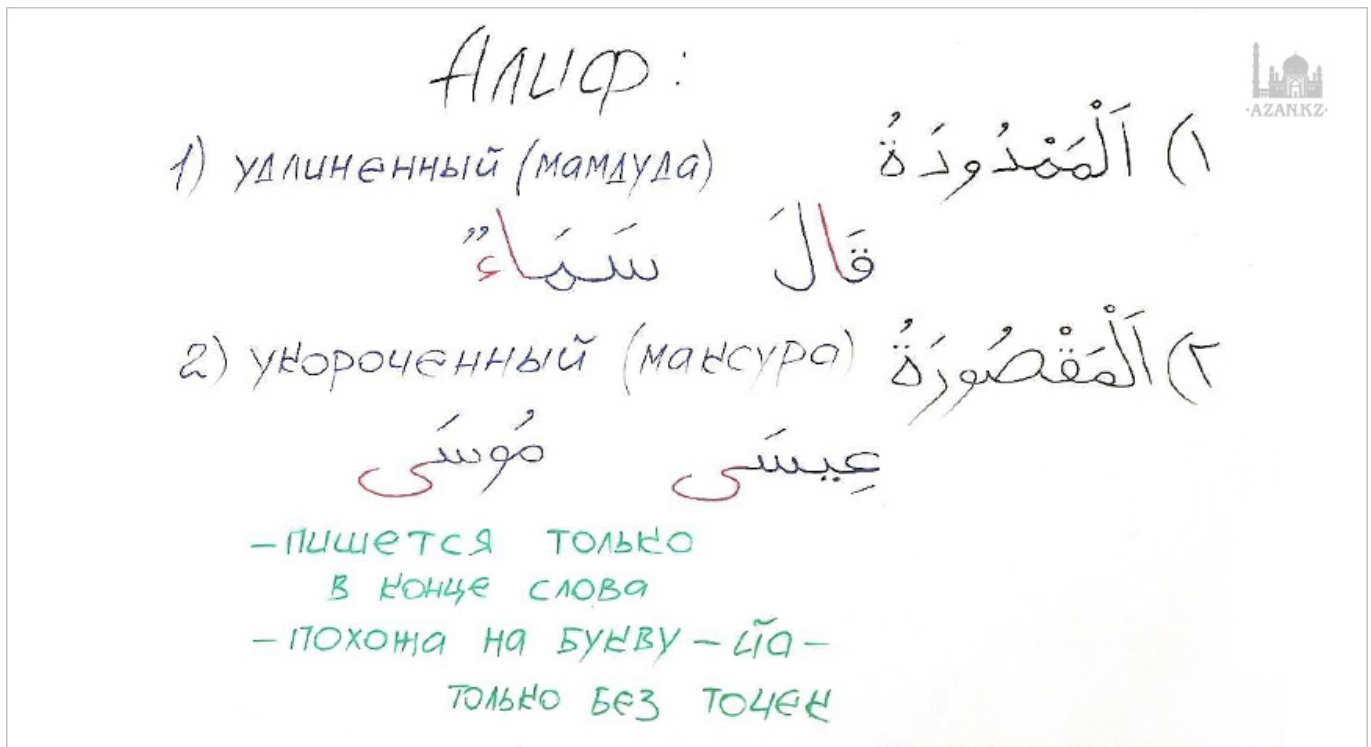 Алиф:
·AZAN.KZ·
1) удлиненный (мамдуда) اَلْمَمْدُودَةُ (١
قَالَ سَمَاءٌ
2) укороченный (максура) اَلْمَقْصُورَةُ (٢
عِيسَى مُوسَى
– пишется только
в конце слова
– похожа на букву – йа –
только без точек